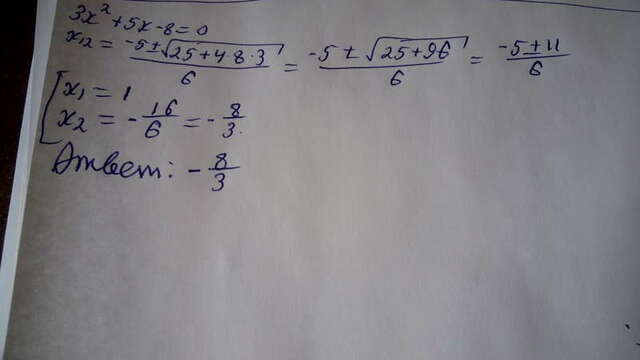 3x² + 5x - 8 = 0
x₁₂ = (-5 ± √(25 + 4·8·3))/6 = (-5 ± √(25 + 96))/6 = (-5 ± 11)/6
[ x₁ = 1
x₂ = -16/6 = -8/3.
Ответ: -8/3